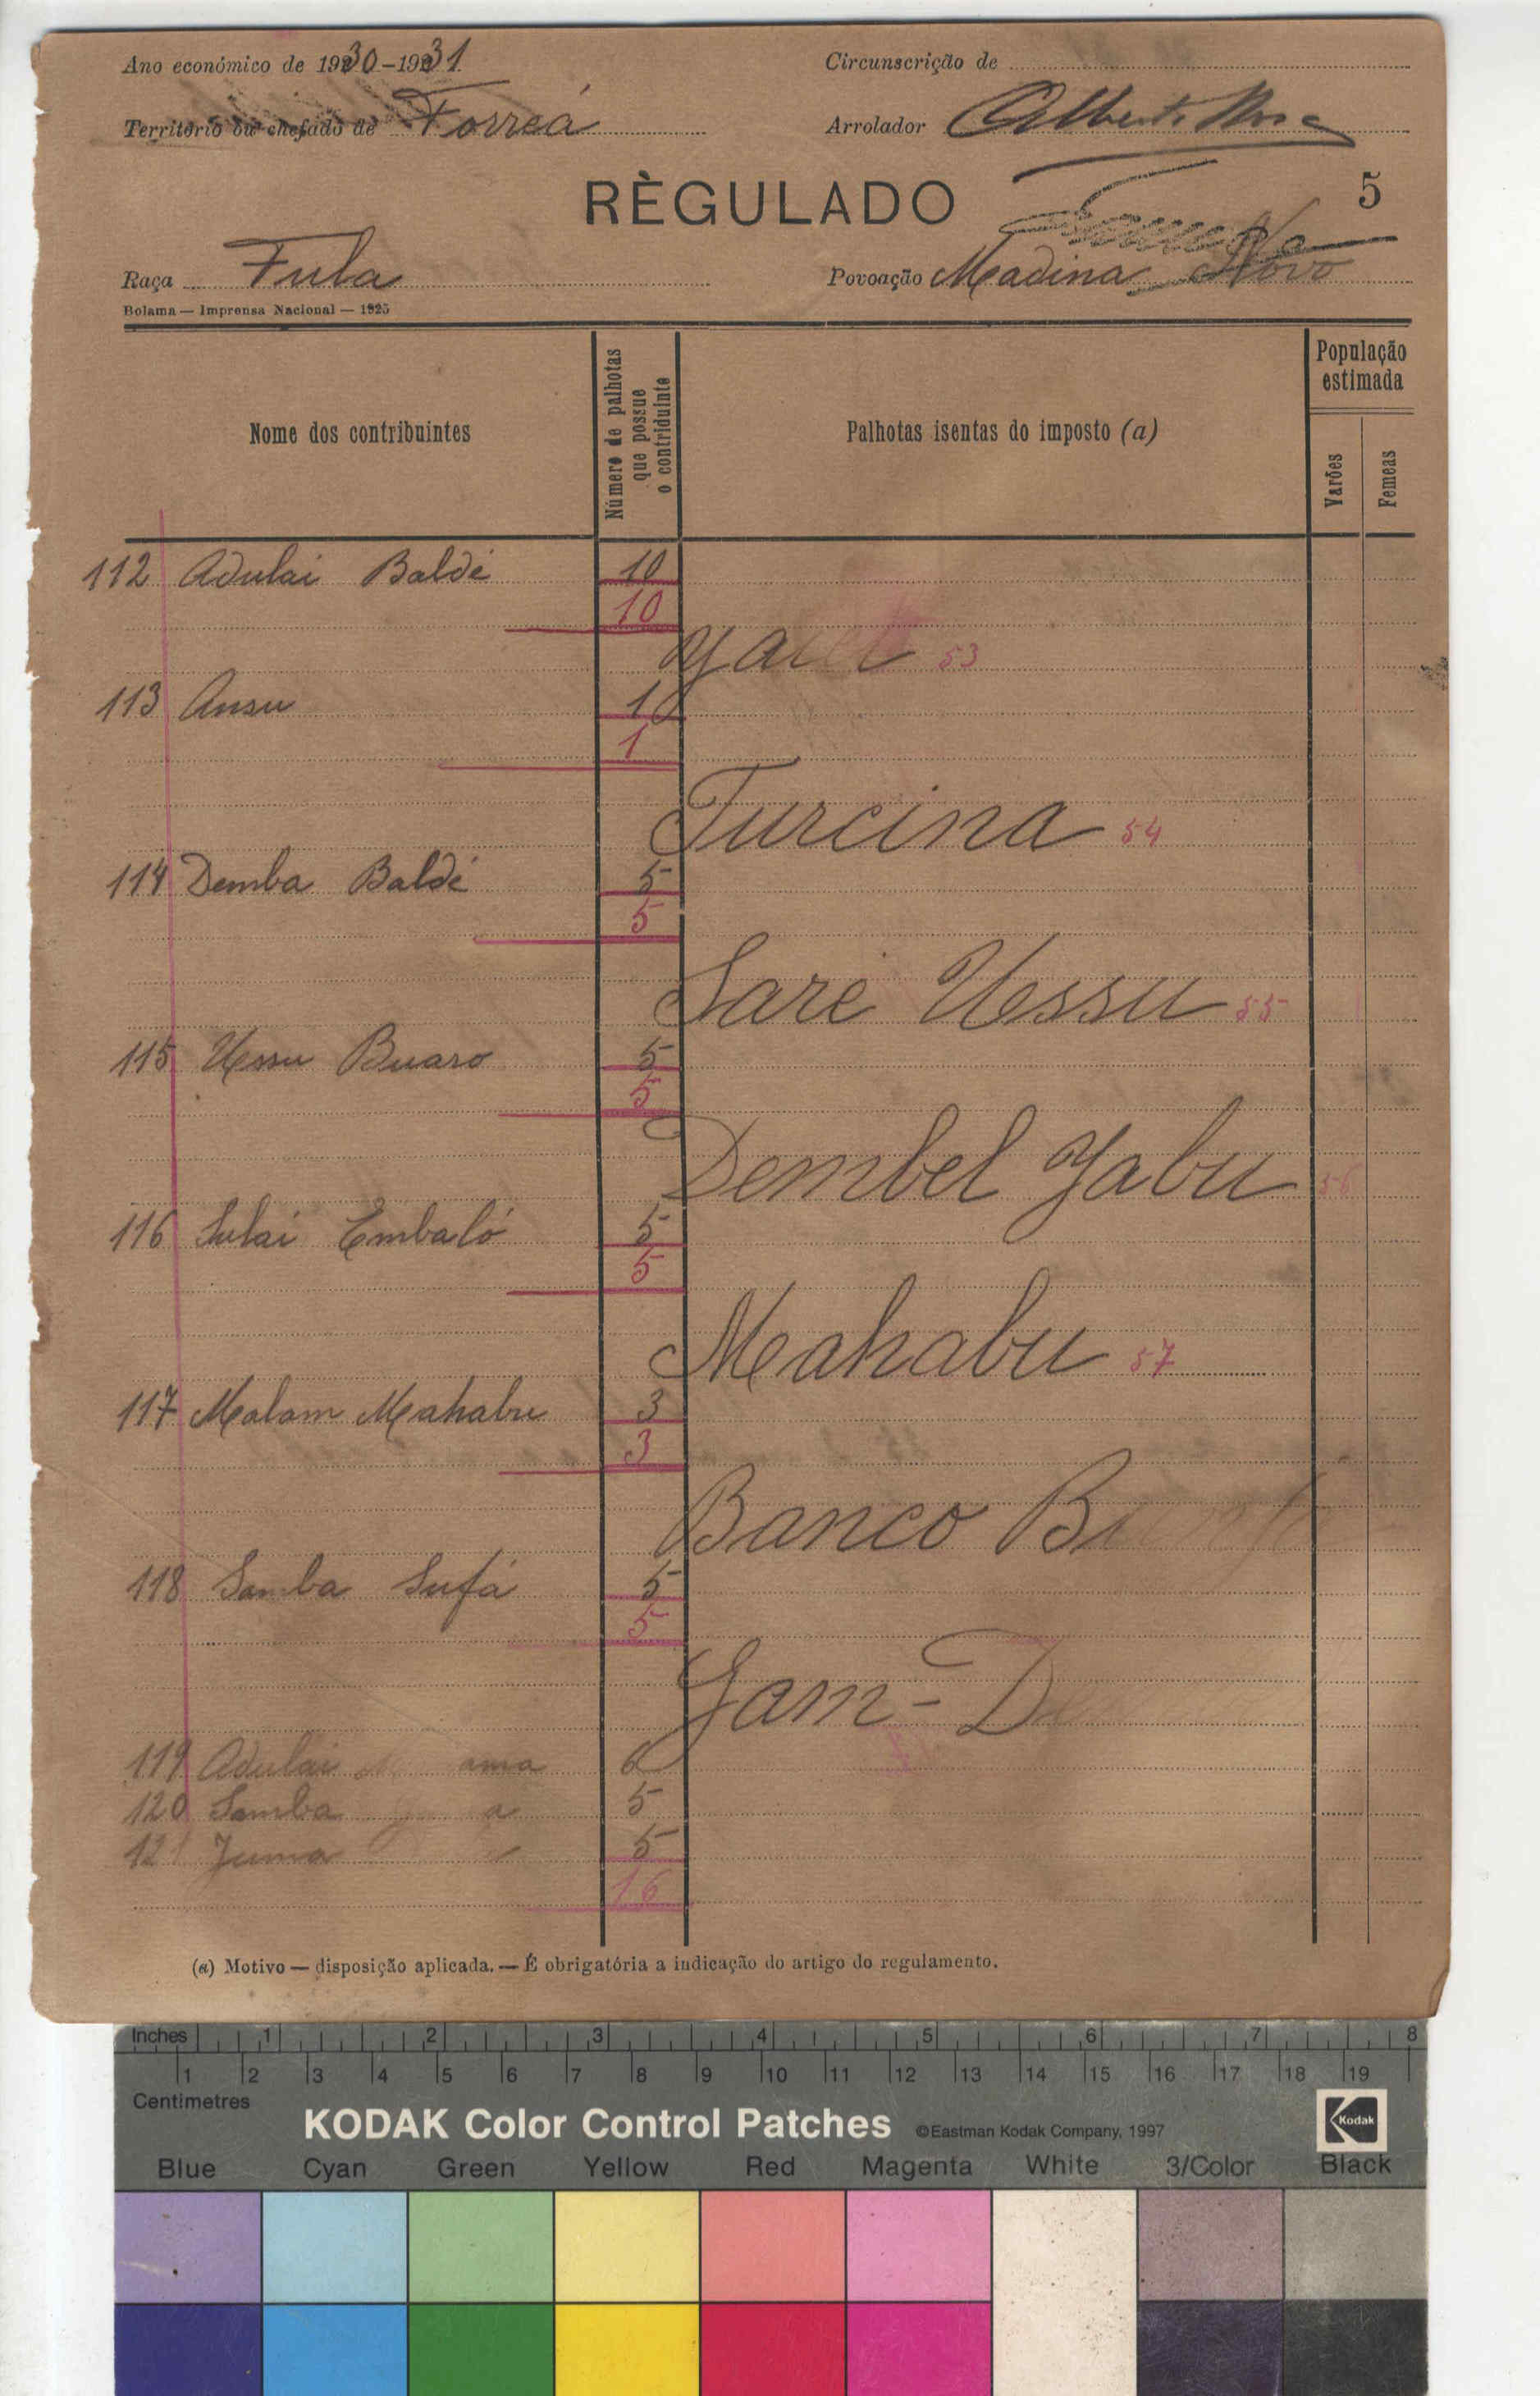 Ano económico de 1930-1931 Circunscrição de
Território ou chefado de Forreá Arrolador Alberto
RÈGULADO 5
Raça Fula Povoação Madina Novo
Bolama — Imprensa Nacional — 1925
Nome dos contribuintes Número de palhotas que possue o contriduinte Palhotas isentas do imposto (a) População estimada
Varões Femeas
112 Adulai Baldé 10
10
53
113 Ansu 1
1
Turcina 54
114 Demba Baldé 5
5
Sare Uessu 55
115 Uessu Buaro 5
5
Dembel Yabu 56
116 Sulai Embaló 5
5
Mahabu 57
117 Malam Mahabu 3
3
Banco
118 Samba Sufá 5
5
Gam-
119 Adulai 6
120 Samba 5
121 Juma 5
16
(a) Motivo — disposição aplicada. — É obrigatória a indicação do artigo do regulamento.
Inches 1 2 3 4 5 6 7 8
1 2 3 4 5 6 7 8 9 10 11 12 13 14 15 16 17 18 19
Centimetres
KODAK Color Control Patches ©Eastman Kodak Company, 1997 Kodak
Blue Cyan Green Yellow Red Magenta White 3/Color Black